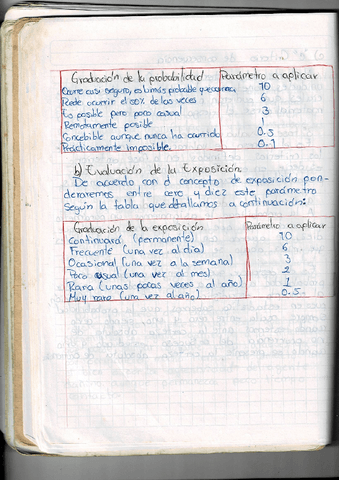 Graduación de la probabilidad Parámetro a aplicar
Ocurre casi seguro, es lo más probable que ocurra. 10
Puede ocurrir el 50% de las veces 6
Es posible pero poco casual 3
Remotamente posible 1
Concebible aunque nunca ha ocurrido 0.5
Prácticamente imposible. 0.1
b) Evaluación de la Exposición.
De acuerdo con el concepto de exposición pon-
deraremos entre cero y diez este parámetro
según la tabla que detallamos a continuación:
Graduación de la exposición Parámetro a aplicar
Continuaró. (permanente) 10
Frecuente (una vez al día) 6
Ocasional (una vez a la semana) 3
Poco usual (una vez al mes) 2
Rara (unas pocas veces al año) 1
Muy raro (una vez al año) 0.5